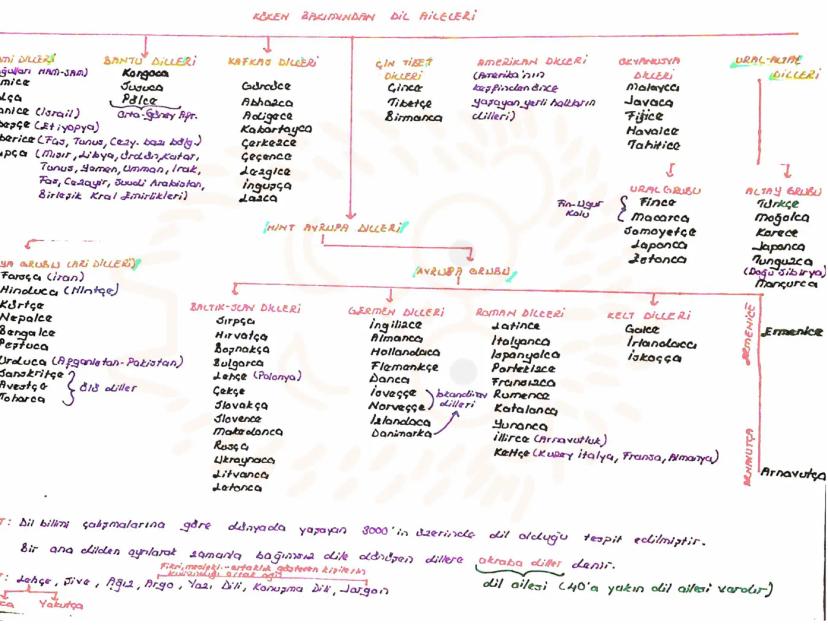 KÖKEN BAKIMINDAN DİL AİLELERİ
Mİ DİLLERİ
ğulları HAM-SAM)
mice
ça
anice (İsrail)
beşçe (Etiyopya)
berice (Fas, Tunus, Cezy. bazı bölg.)
apça (Mısır, Libya, Ürdün, Katar,
Tunus, Yemen, Umman, Irak,
Fas, Cezayir, Suudi Arabistan,
Birleşik Kral Emirlikleri)
BANTU DİLLERİ
Kongoca
Susuca
Pölce
Orta-Güney Afr.
KAFKAS DİLLERİ
Gürcüce
Abhazca
Adigece
Kabartayca
Çerkezce
Çeçence
Lezgice
İnguşça
Lazca
ÇİN TİBET
DİLLERİ
Çince
Tibetçe
Birmanca
AMERİKAN DİLLERİ
(Amerika'nın
keşfinden önce
yaşayan yerli halkların
dilleri)
OKYANUSYA
DİLLERİ
Malayca
Javaca
Fijice
Havaice
Tahitice
URAL-ALTAY
DİLLERİ
URAL GRUBU
Fin-Ugur
Kolu
Fince
Macarca
Samoyetçe
Laponca
Estonca
ALTAY GRUBU
Türkçe
Moğolca
Korece
Japonca
Tunguzca
(Doğu Sibirya)
Mançurca
HİNT AVRUPA DİLLERİ
YA GRUBU (ARİ DİLLERİ)
Farsça (İran)
Hinduca (Hintçe)
Kürtçe
Nepalce
Bengalce
Peştuca
Urduca (Afganistan-Pakistan)
Sanskritçe
Avestçe
Toharca
Ölü diller
AVRUPA GRUBU
BALTIK-SLAV DİLLERİ
Sırpça
Hırvatça
Boşnakça
Bulgarca
Lehçe (Polonya)
Çekçe
Slovakça
Slovence
Makedonca
Rusça
Ukraynaca
Litvanca
Letonca
GERMEN DİLLERİ
İngilizce
Almanca
Hollandaca
Flemenkçe
Danca
İsveççe
Norveççe
İzlandaca
Danimarka
İskandinav
dilleri
ROMAN DİLLERİ
Latince
İtalyanca
İspanyolca
Portekizce
Fransızca
Rumence
Katalanca
Yunanca
İllirce (Arnavutluk)
Keltçe (Kuzey İtalya, Fransa, Almanya)
KELT DİLLERİ
Galce
İrlandaca
İskoçça
ERMENİCE
Ermenice
ARNAVUTÇA
Arnavutça
T: Dil bilimi çalışmalarına göre dünyada yaşayan 3000'in üzerinde dil olduğu tespit edilmiştir.
Bir ana dilden ayrılarak zamanla bağımsız dile dönüşen dillere akraba diller denir.
dil ailesi (40'a yakın dil ailesi vardır)
Fikri, mesleki - ortaklık gösteren kişilerin
kullandığı ortak ağız
T: Lehçe, Şive, Ağız, Argo, Yazı Dili, Konuşma Dili, Jargon
ca Yakutça